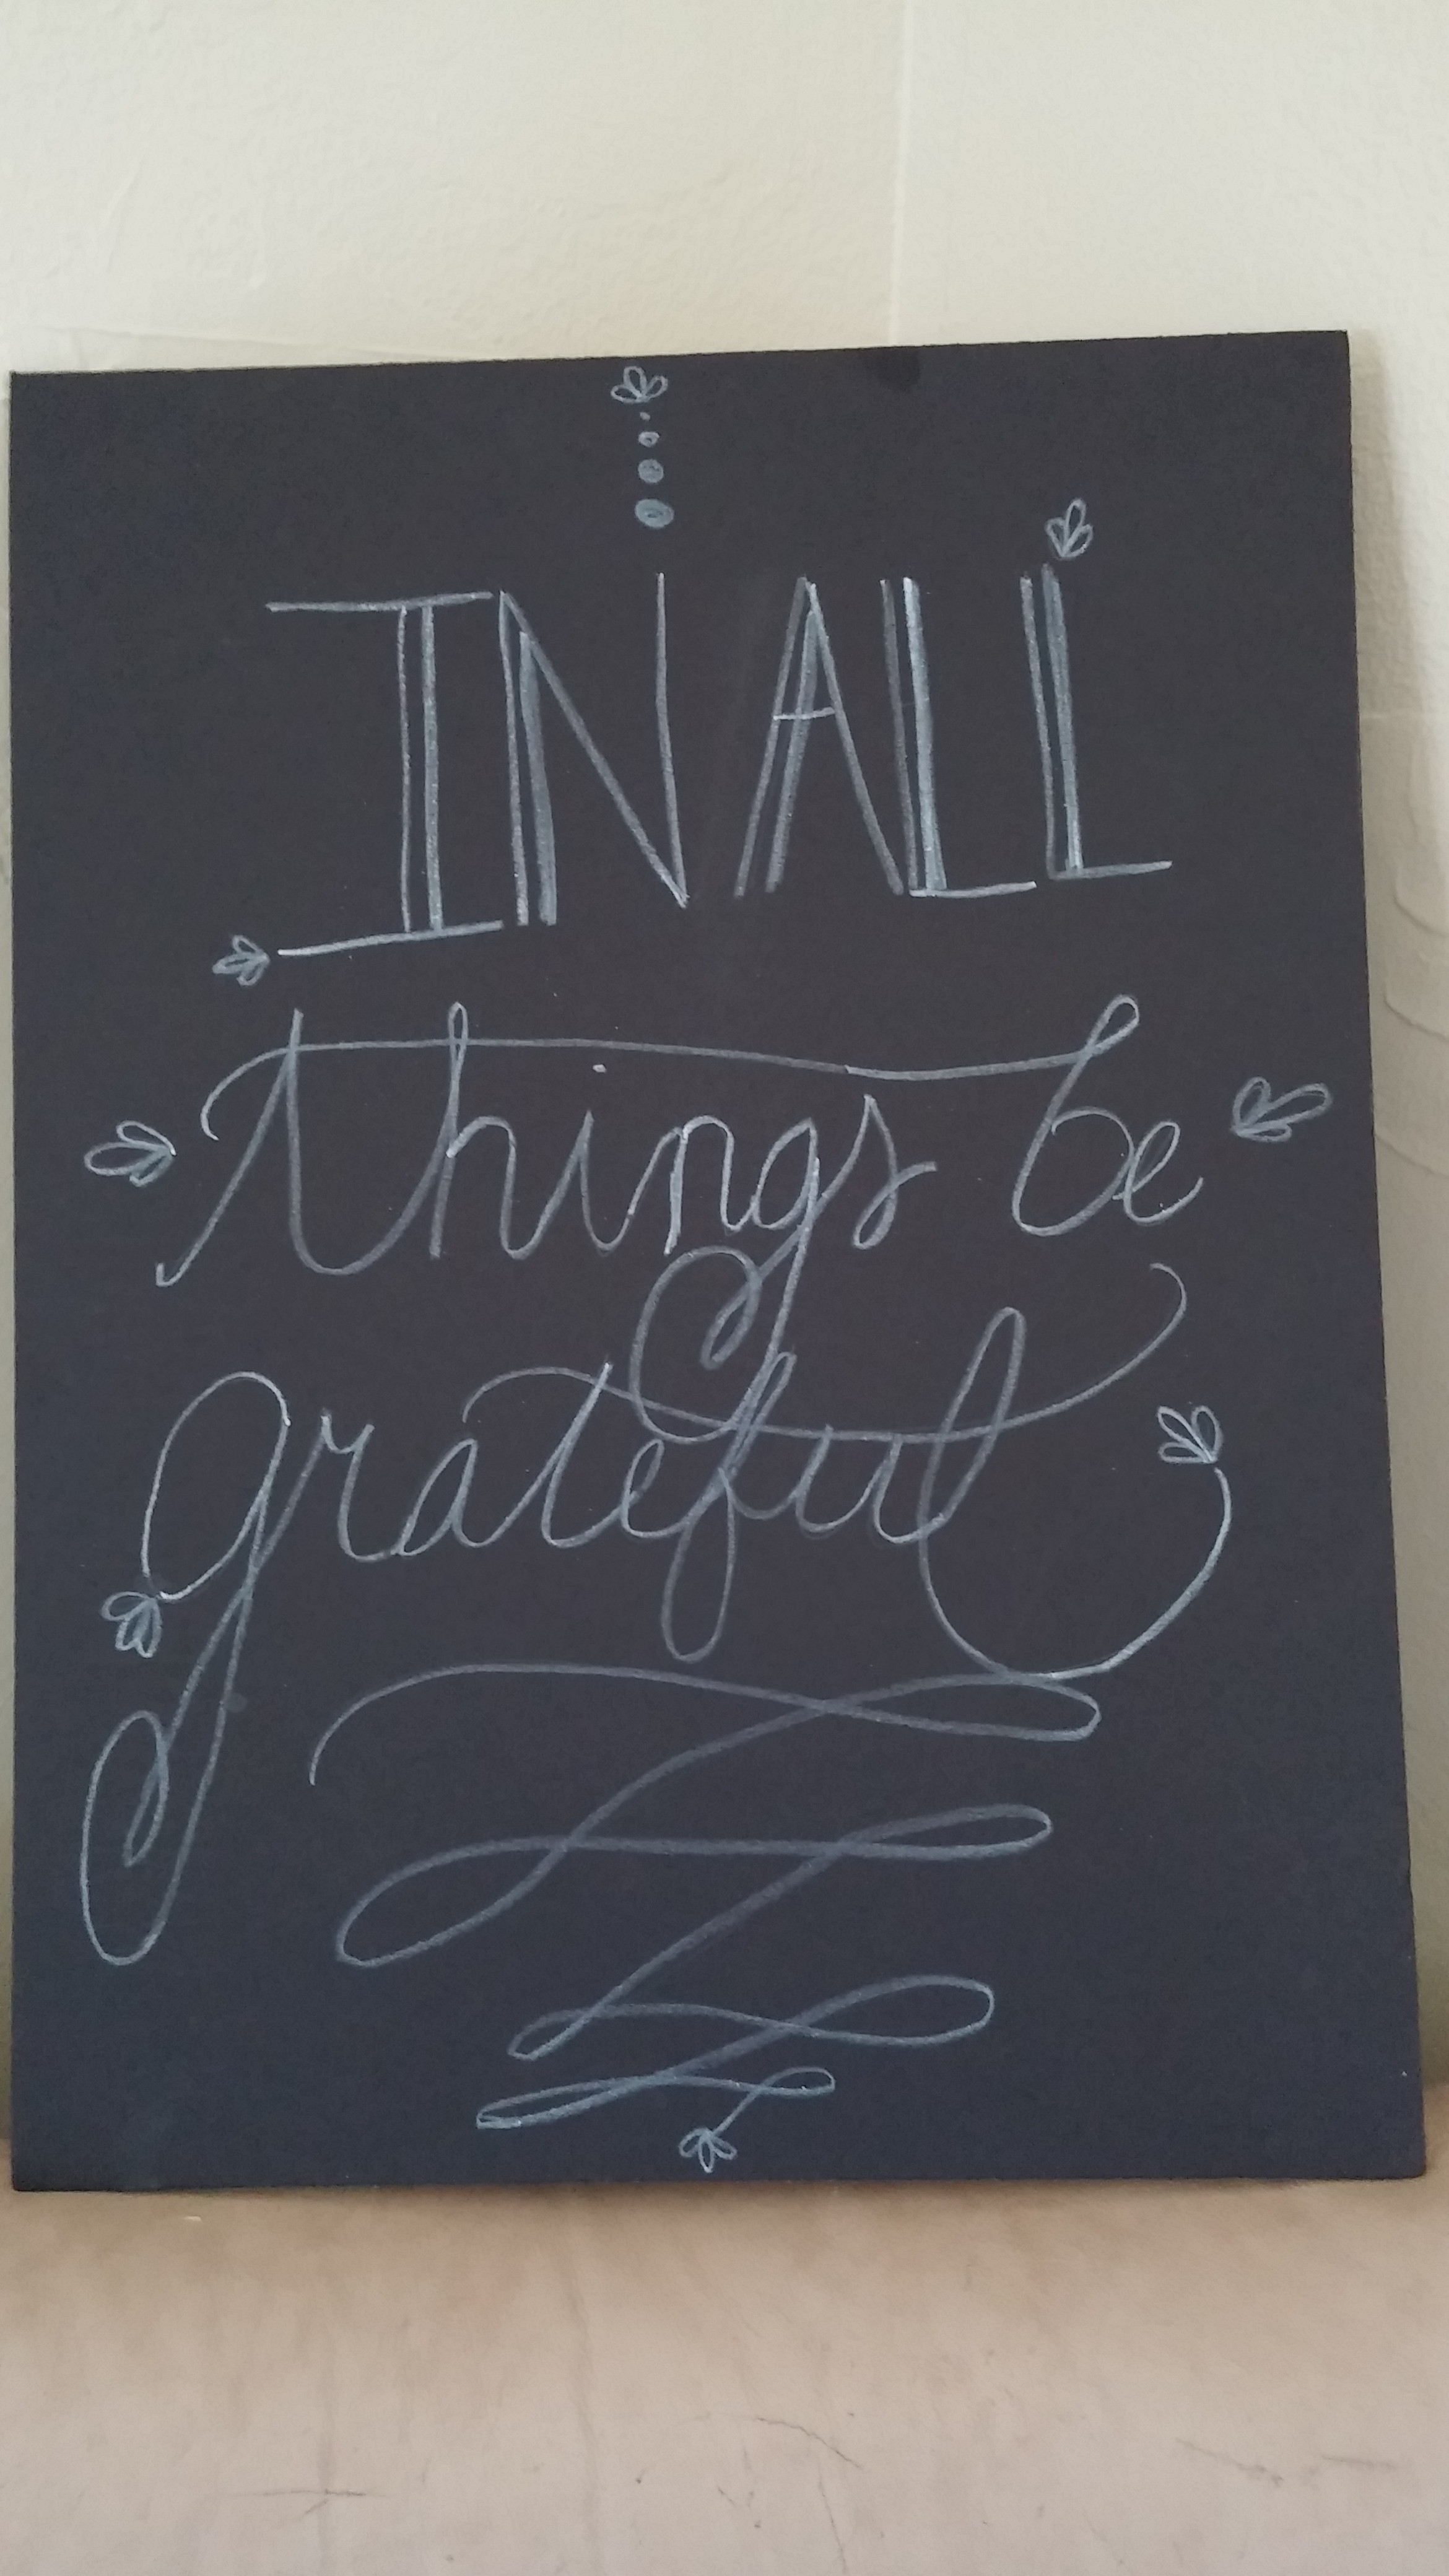 IN ALL
things be
grateful